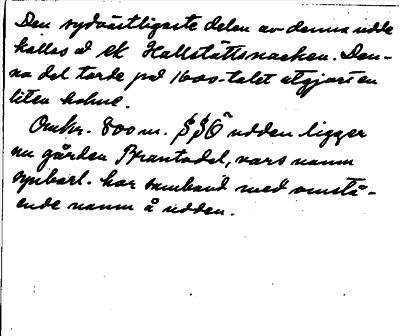 Den sydvästligaste delen av denna udde
kallas å ek Hallstattsnacken. Den-
na del torde på 1600-talet utgjort en
liten holme.
Omkr. 800 m. SSÖ udden ligger
nu gården Brantadal, vars namn
synbarl. har samband med omstå-
ende namn å udden.